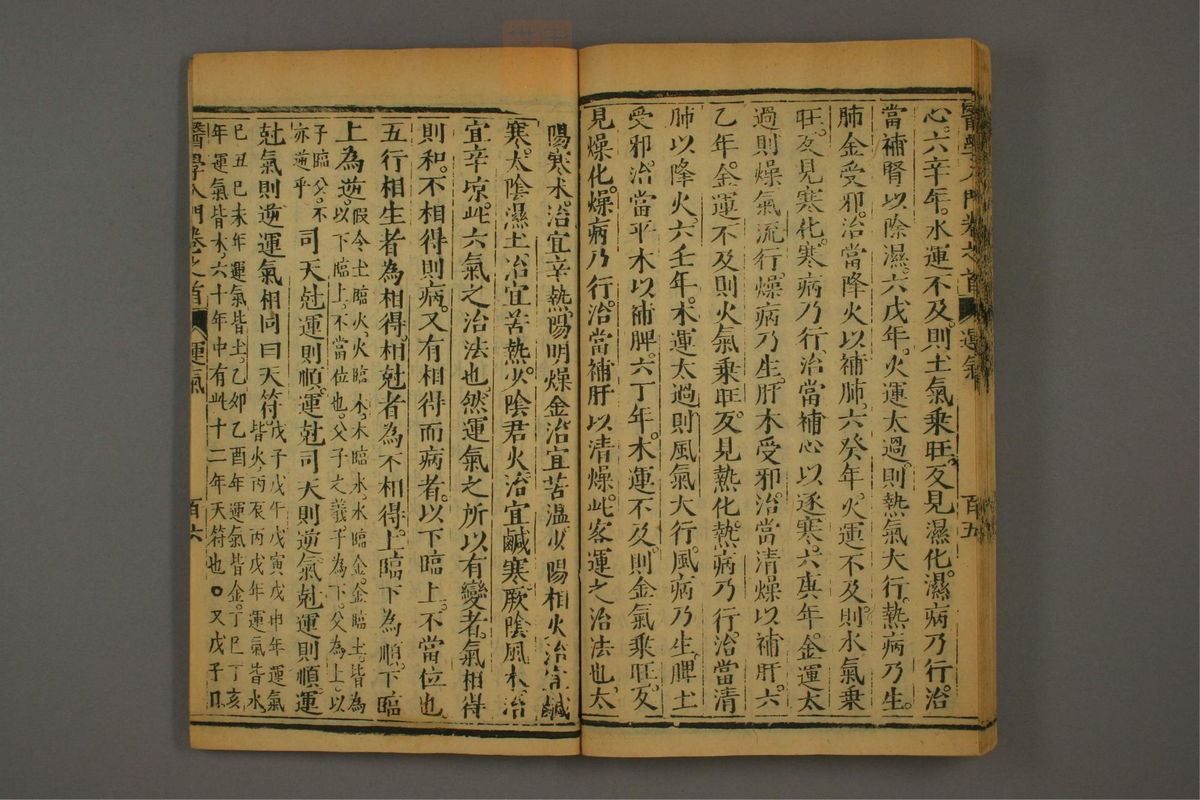 醫學入門 卷之首 運氣 百五
心。六辛年。水運不及。則土氣乘旺。反見濕化。濕病乃行。治
當補腎以除濕。六戊年。火運太過。則熱氣大行。熱病乃生。
肺金受邪。治當降火以補肺。六癸年。火運不及。則水氣乘
旺。反見寒化。寒病乃行。治當補心以逐寒。六庚年。金運太
過。則燥氣流行。燥病乃生。肝木受邪。治當清燥以補肝。六
乙年。金運不及。則火氣乘旺。反見熱化。熱病乃行。治當清
肺以降火。六壬年。木運太過。則風氣大行。風病乃生。脾土
受邪。治當平木以補脾。六丁年。木運不及。則金氣乘旺。反
見燥化。燥病乃行。治當補肝以清燥。此客運之治法也。太
陽寒水。治宜辛熱。陽明燥金。治宜苦溫。少陽相火。治宜鹹
寒。太陰濕土。治宜苦熱。少陰君火。治宜鹹寒。厥陰風木。治
宜辛凉。此六氣之治法也。然運氣之所以有變者。氣相得
則和。不相得則病。又有相得而病者。以下臨上。不當位也。
五行相生者為相得。相尅者為不相得。上臨下為順。下臨
上為逆。假令土臨火。火臨木。木臨水。水臨金。金臨土。皆為
以下臨上。不當位也。父子之義。子為下。父為上。以
子臨父。不
亦逆乎 司天尅運則順。運尅司天則逆。氣尅運則順。運
尅氣則逆。運氣相同曰天符。戊子戊午戊寅戊申年運氣
皆火。丙辰丙戌年運氣皆水
己丑己未年運氣皆土。乙卯乙酉年運氣皆金。丁巳丁亥
年運氣皆木。六十年中有此十二年天符也。○又戊子日
醫學入門 卷之首 運氣 百六